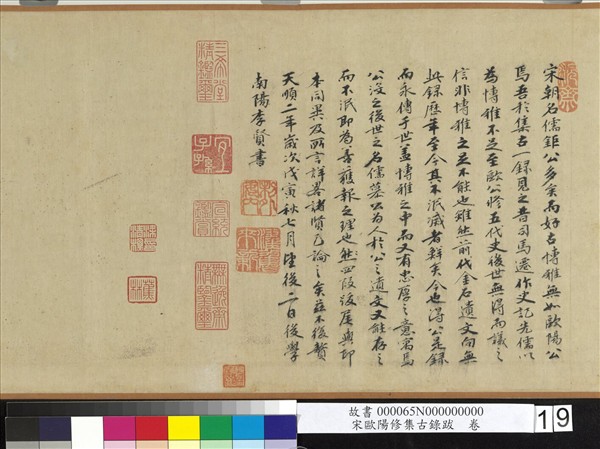 宋朝名儒鉅公多矣而好古博雅無如歐陽公
焉吾於集古一録見之昔司馬遷作史記先儒以
為博雅不足至歐公修五代史後世無得而議之
信非博雅之至不能也雖然前代金石遺文向無
此録歷年至今其不泯滅者鮮矣今也得公是録
而永傳于世盖博雅之中而又有忠厚之意寓焉
公没之後世之名儒慕公為人於公之遺文又能存之
而不泯即為善獲報之理也然四段後屢與即
本同異及所言詳畧諸賢已論之矣茲不復贅
天順二年歲次戊寅秋七月望後二日後學
南陽李賢書
三希堂
精鑑璽
宜子
孫
故書 000065N000000000
宋歐陽修集古錄跋 卷
19